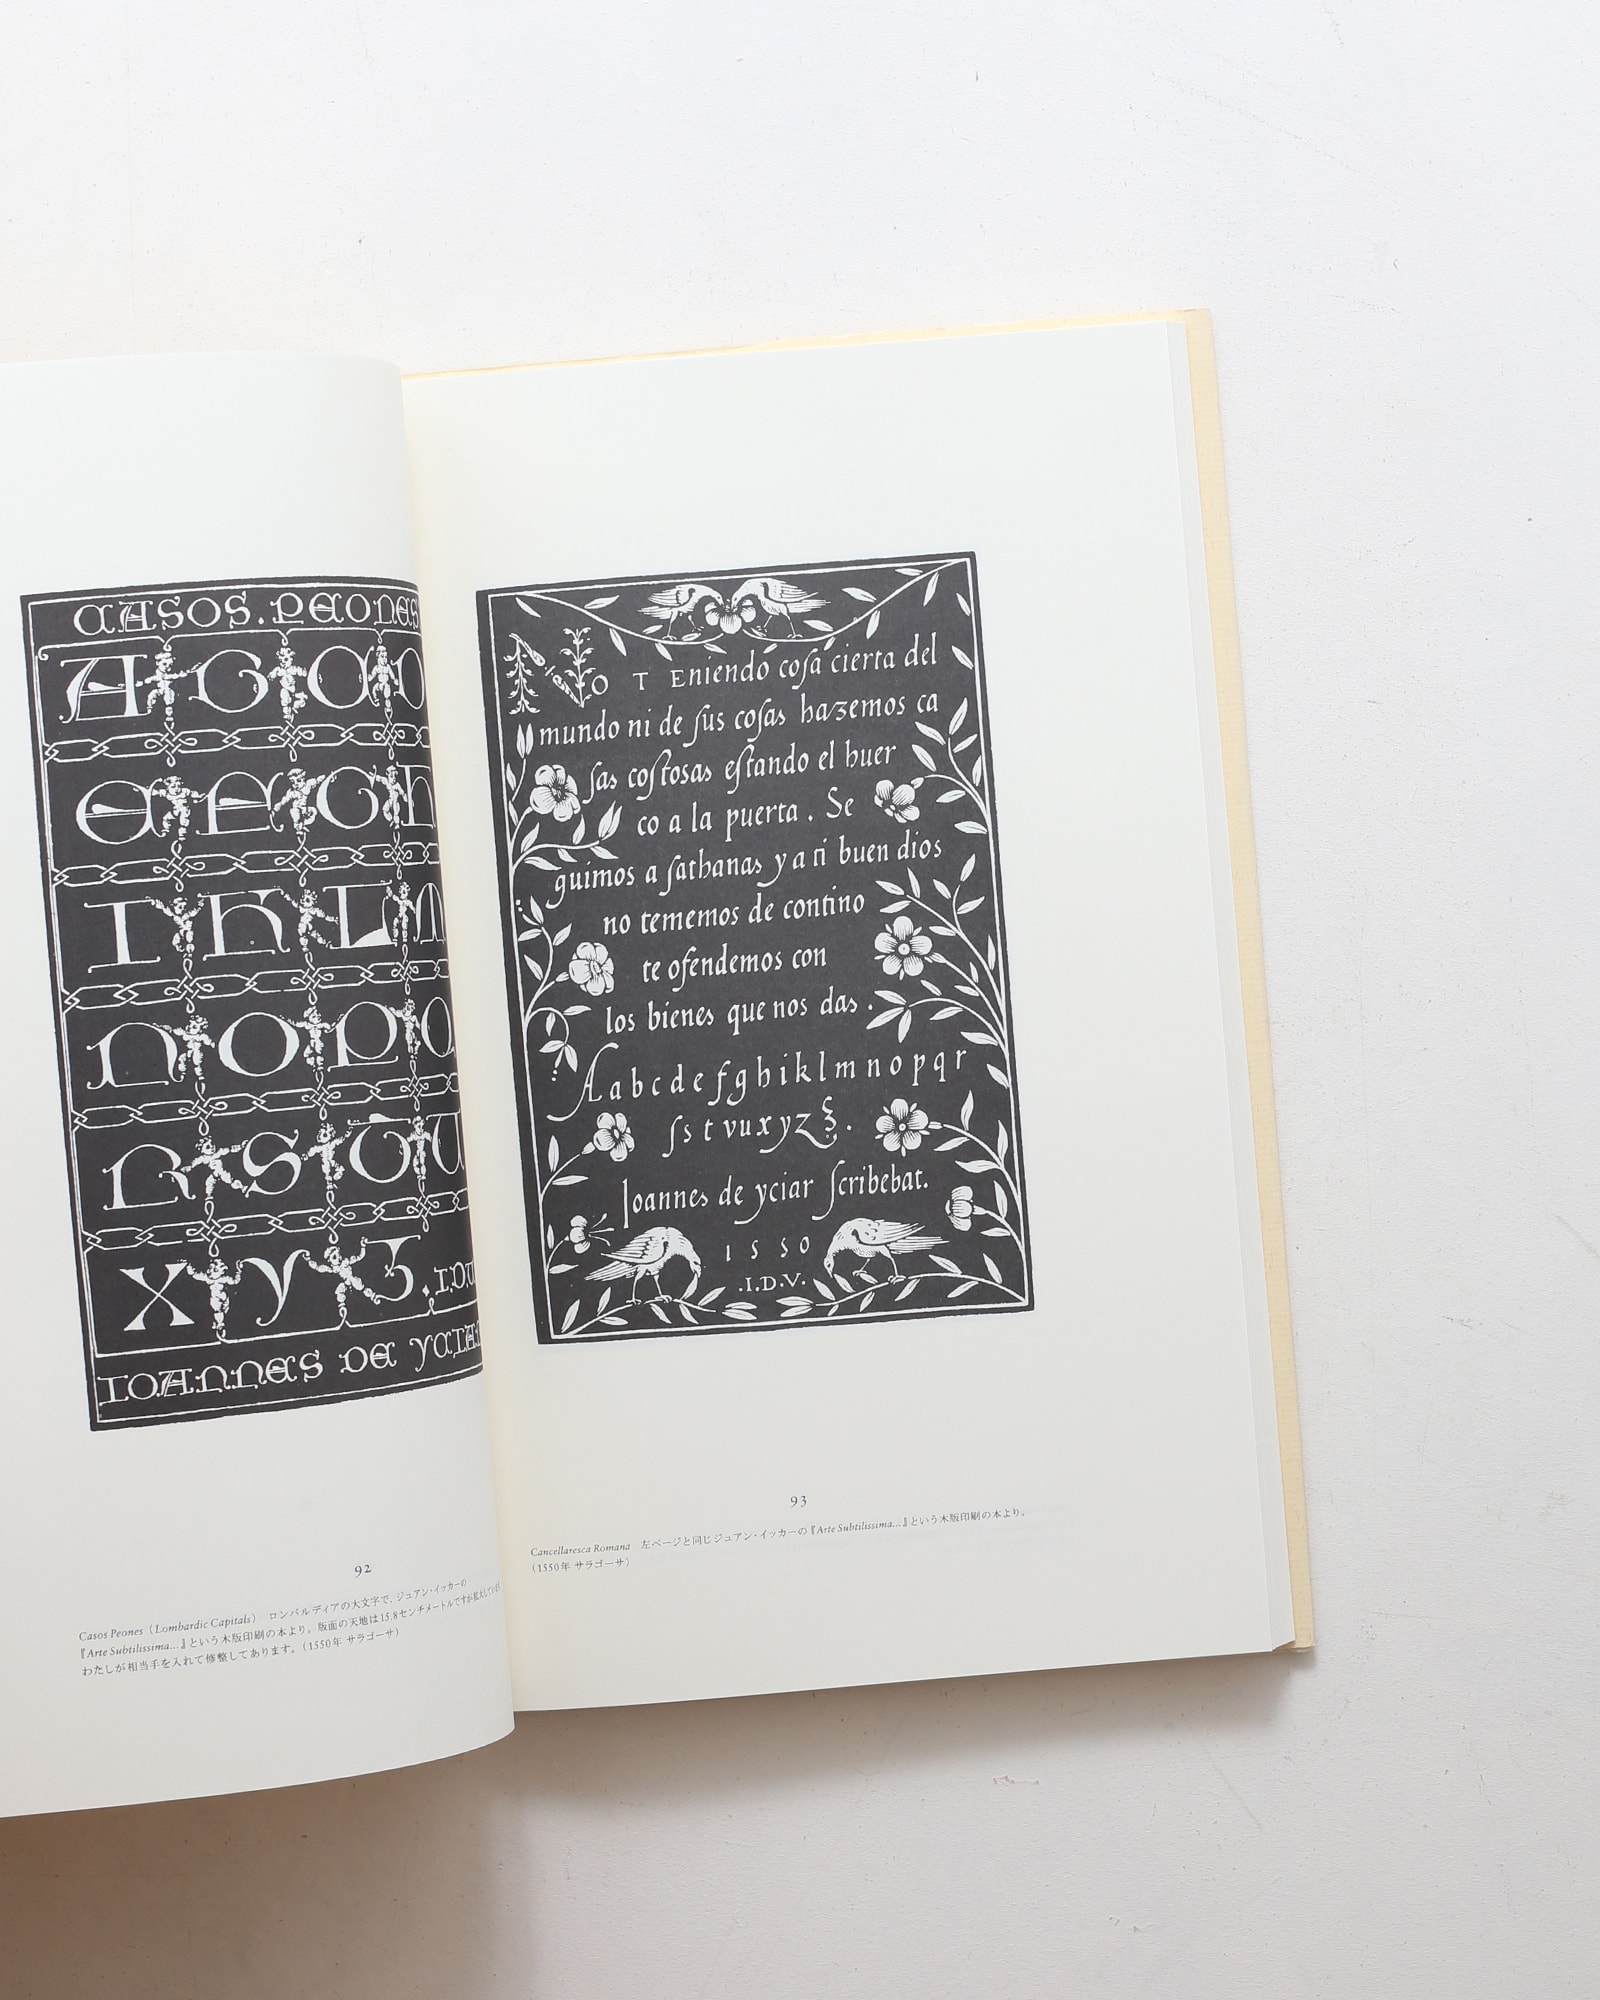 CASOS.PEONES
A C C D
E F G H
I K L M
N O P Q
R S T U
X Y Z . I.D.V
IOANNES DE YCIAR
92
Casos Peones（Lombardic Capitals） ロンバルディアの大文字で，ジュアン・イッカーの
『Arte Subtilissima...』という木版印刷の本より。版面の天地は15.8センチメートルですが拡大してい
わたしが相当手を入れて修整してあります。（1550年 サラゴーサ）
NO T Eniendo coſa cierta del
mundo ni de ſus coſas hazemos ca
ſas coſtosas eſtando el huer
co a la puerta . Se
guimos a ſathanas y a ti buen dios
no tememos de contino
te ofendemos con
los bienes que nos das .
A a b c d e f g h i k l m n o p q r
ſ s t v u x y z ξ .
Ioannes de yciar ſcribebat.
1550
.I.D.V.
93
Cancellaresca Romana 左ページと同じジュアン・イッカーの『Arte Subtilissima...』という木版印刷の本より。
（1550年 サラゴーサ）